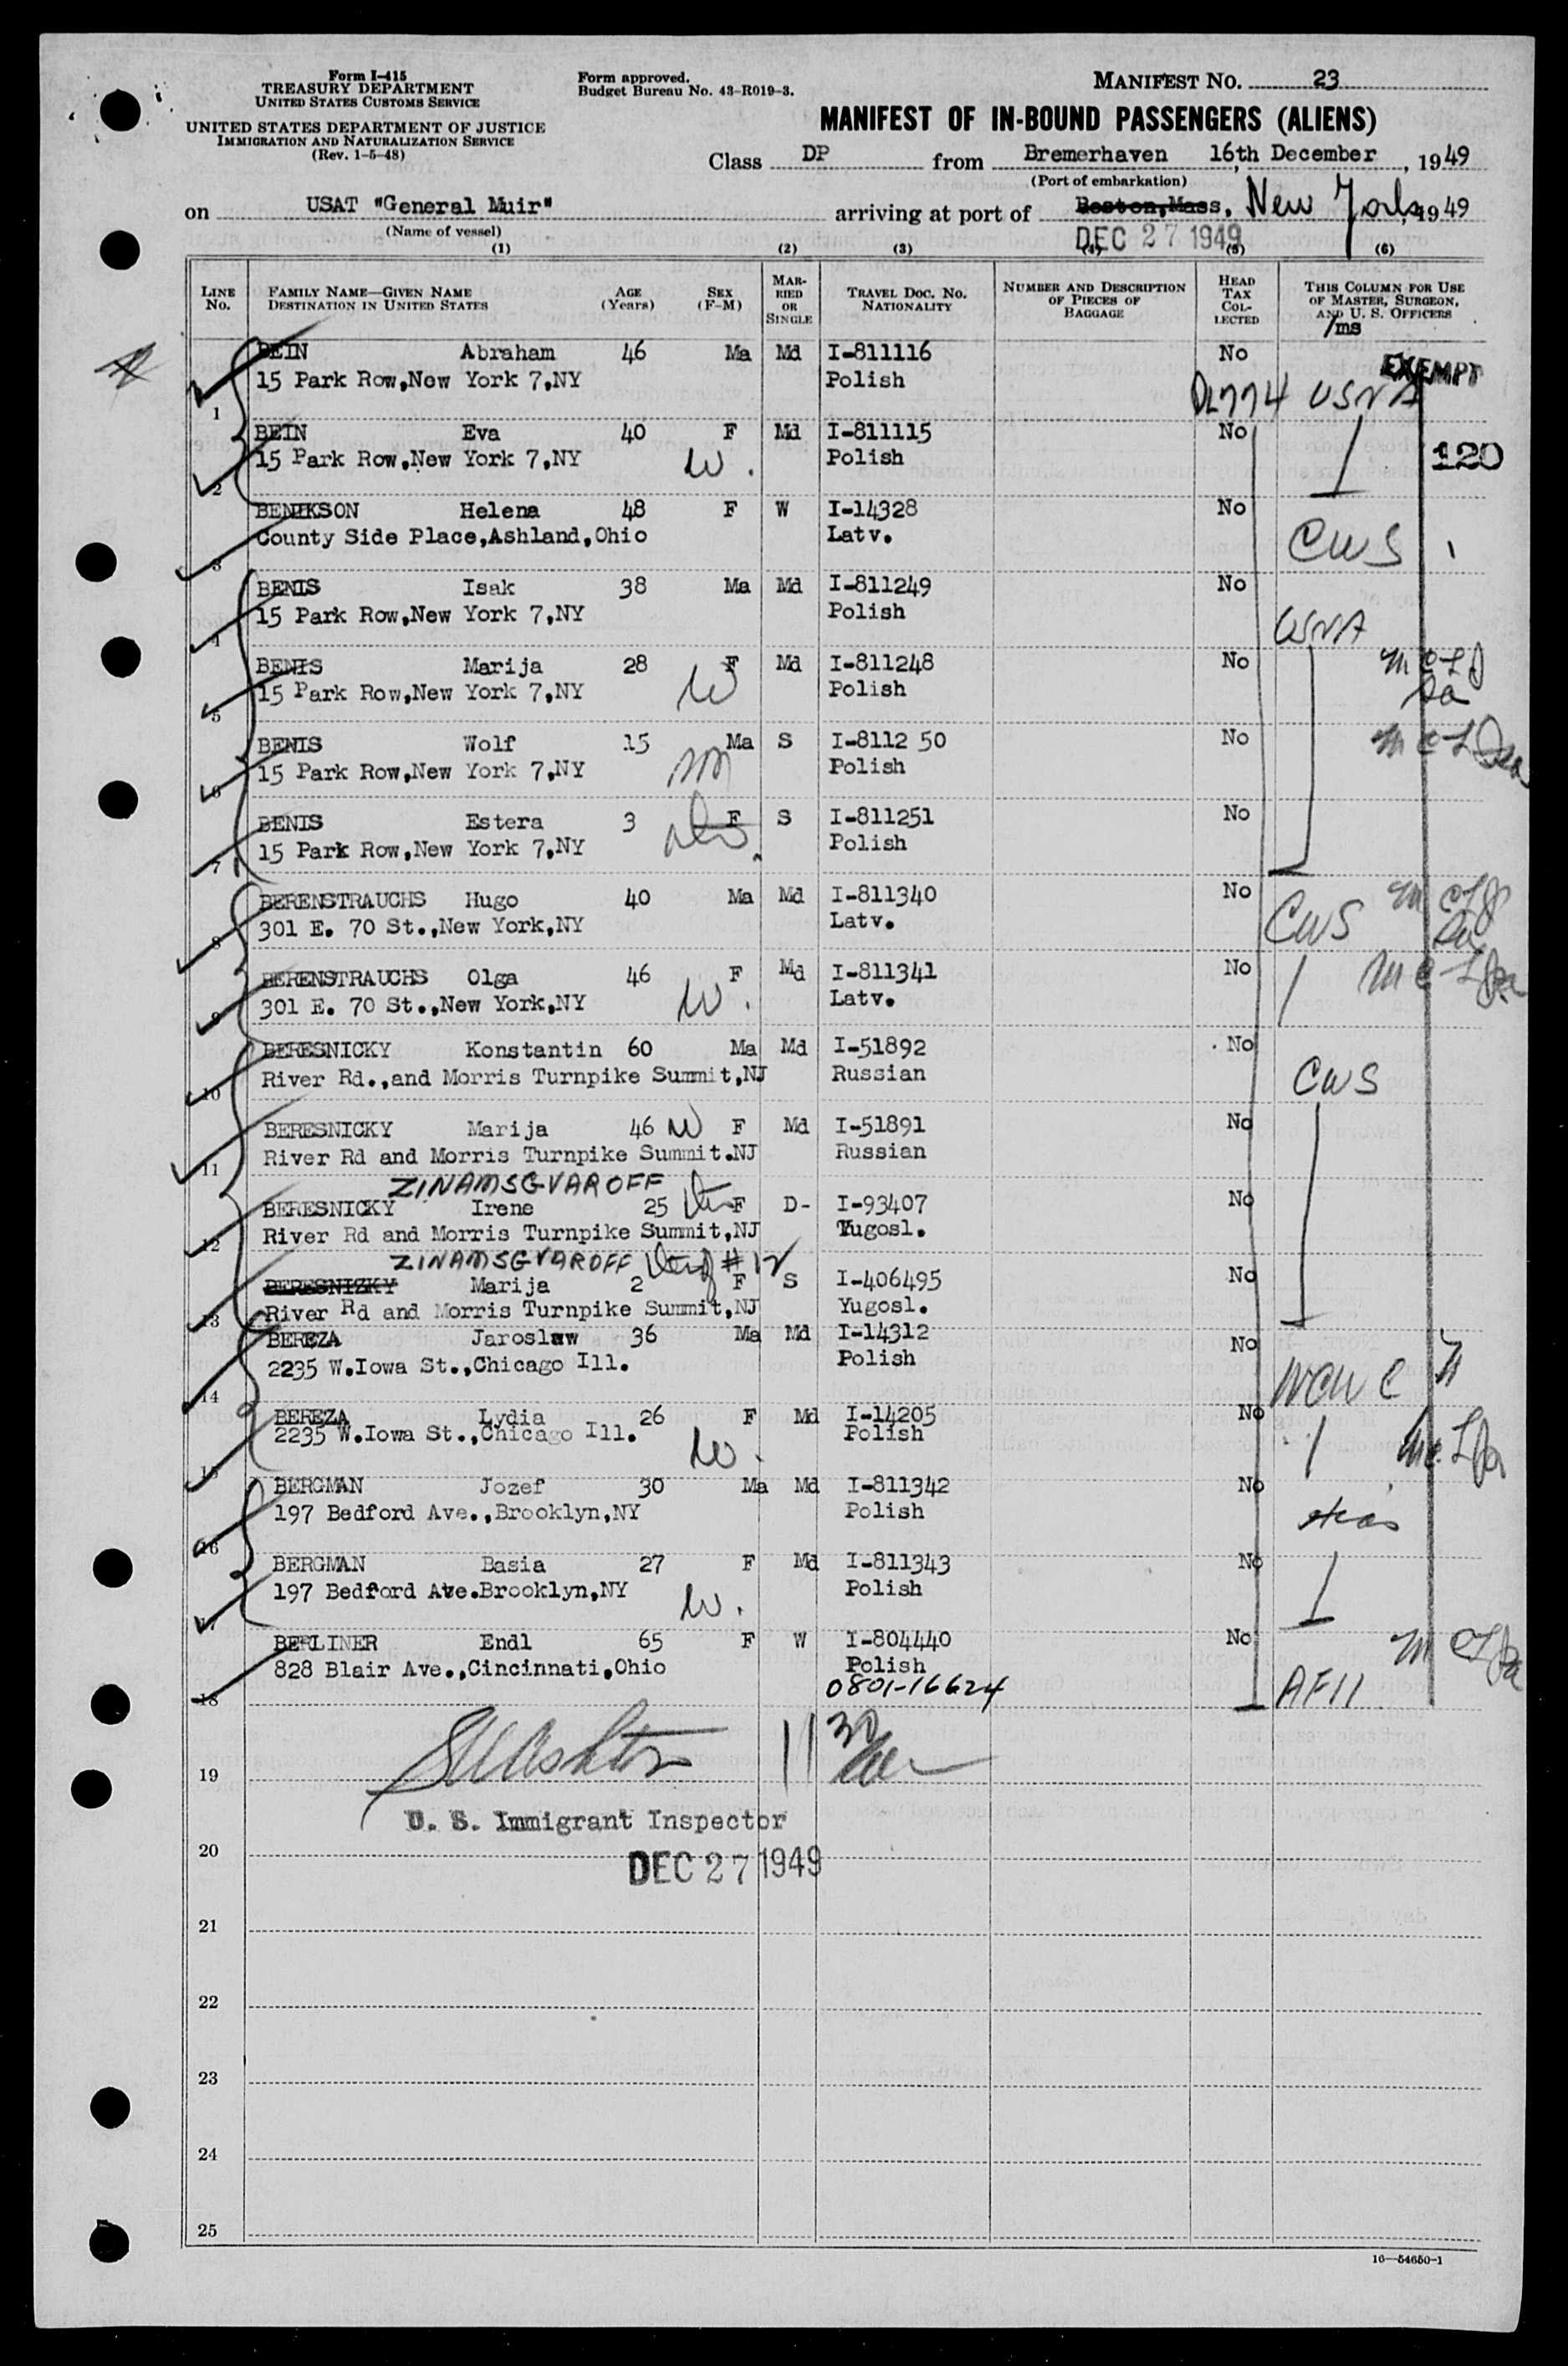 Form I-415
TREASURY DEPARTMENT
UNITED STATES CUSTOMS SERVICE
UNITED STATES DEPARTMENT OF JUSTICE
IMMIGRATION AND NATURALIZATION SERVICE
(Rev. 1-5-48)
Form approved.
Budget Bureau No. 43-R019-3.
MANIFEST NO. 23
MANIFEST OF IN-BOUND PASSENGERS (ALIENS)
Class DP from Bremerhaven 16th December, 1949
(Port of embarkation)
on USAT "General Muir" arriving at port of Boston,Mass, New York, 1949
(Name of vessel)
DEC 27 1949
(1) (2) (3) (4) (5) (6)
LINE No. FAMILY NAME—GIVEN NAME DESTINATION IN UNITED STATES AGE (Years) SEX (F-M) MARRIED OR SINGLE TRAVEL DOC. NO. NATIONALITY NUMBER AND DESCRIPTION OF PIECES OF BAGGAGE HEAD TAX COLLECTED THIS COLUMN FOR USE OF MASTER, SURGEON, AND U. S. OFFICERS
/ms
BEIN Abraham 46 Ma Md I-811116 No EXEMPT
15 Park Row,New York 7,NY Polish
1 USNA
BEIN Eva 40 F Md I-811115 No
15 Park Row,New York 7,NY W. Polish 120
2
BENIKSON Helena 48 F W I-14328 No
County Side Place,Ashland,Ohio Latv. CWS
3
BENIS Isak 38 Ma Md I-811249 No
15 Park Row,New York 7,NY Polish
4 USNA
BENIS Marija 28 F Md I-811248 No
15 Park Row,New York 7,NY W Polish
5
BENIS Wolf 15 Ma S I-8112 50 No
15 Park Row,New York 7,NY Polish
6
BENIS Estera 3 F S I-811251 No
15 Park Row,New York 7,NY Polish
7
BERENSTRAUCHS Hugo 40 Ma Md I-811340 No
301 E. 70 St.,New York,NY Latv. CWS
8
BERENSTRAUCHS Olga 46 F Md I-811341 No
301 E. 70 St.,New York,NY W. Latv.
9
BERESNICKY Konstantin 60 Ma Md I-51892 No
River Rd.,and Morris Turnpike Summit,NJ Russian CWS
10
BERESNICKY Marija 46 W F Md I-51891 No
River Rd and Morris Turnpike Summit.NJ Russian
11
ZINAMSGVAROFF
BERESNICKY Irene 25 F D- I-93407 No
River Rd and Morris Turnpike Summit,NJ Yugosl.
12
ZINAMSGVAROFF #12
BERESNIZKY Marija 2 F S I-406495 No
River Rd and Morris Turnpike Summit,NJ Yugosl.
13
BEREZA Jaroslaw 36 Ma Md I-14312 No
2235 W.Iowa St.,Chicago Ill. Polish
14 NCWC
BEREZA Lydia 26 F Md I-14205 No
2235 W.Iowa St.,Chicago Ill. W. Polish
15
BERGMAN Jozef 30 Ma Md I-811342 No
197 Bedford Ave.,Brooklyn,NY Polish Hias
16
BERGMAN Basia 27 F Md I-811343 No
197 Bedford Ave.Brooklyn,NY W. Polish
17
BERLINER Endl 65 F W I-804440 No
828 Blair Ave.,Cincinnati,Ohio Polish
18 0801-16624
19
U. S. Immigrant Inspector
20
DEC 27 1949
21
22
23
24
25
16—54650-1